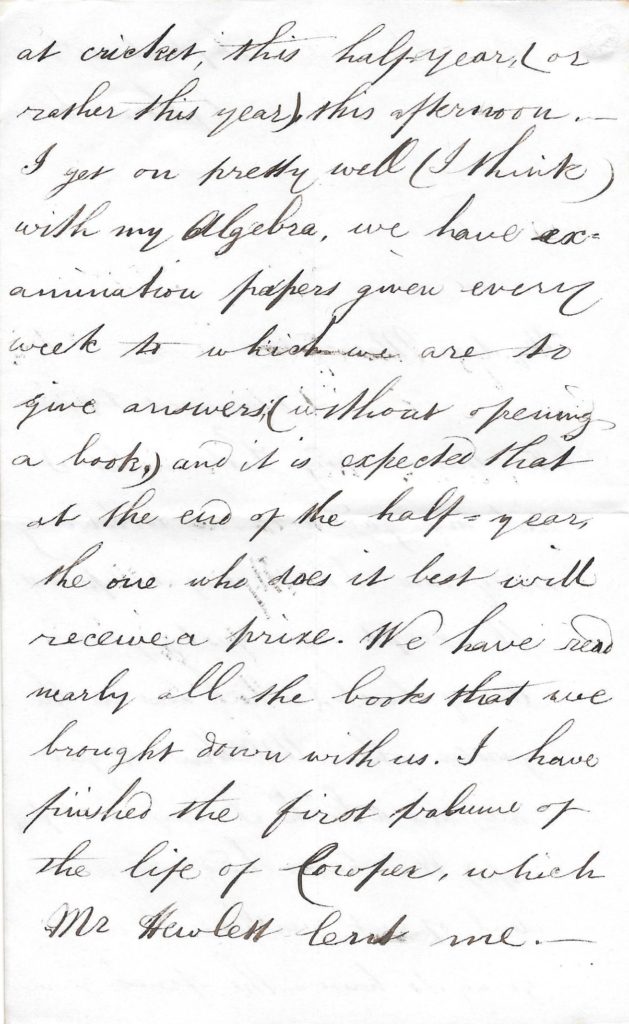 at cricket, this half-year, (or
rather this year), this afternoon. —
I get on pretty well (I think)
with my Algebra, we have ex=
amination papers given every
week to which we are to
give answers, (without opening
a book,) and it is expected that
at the end of the half=year,
the one who does it best will
receive a prize. We have read
nearly all the books that we
brought down with us. I have
finished the first volume of
the life of Cowper, which
Mr Hewlett lent me. —